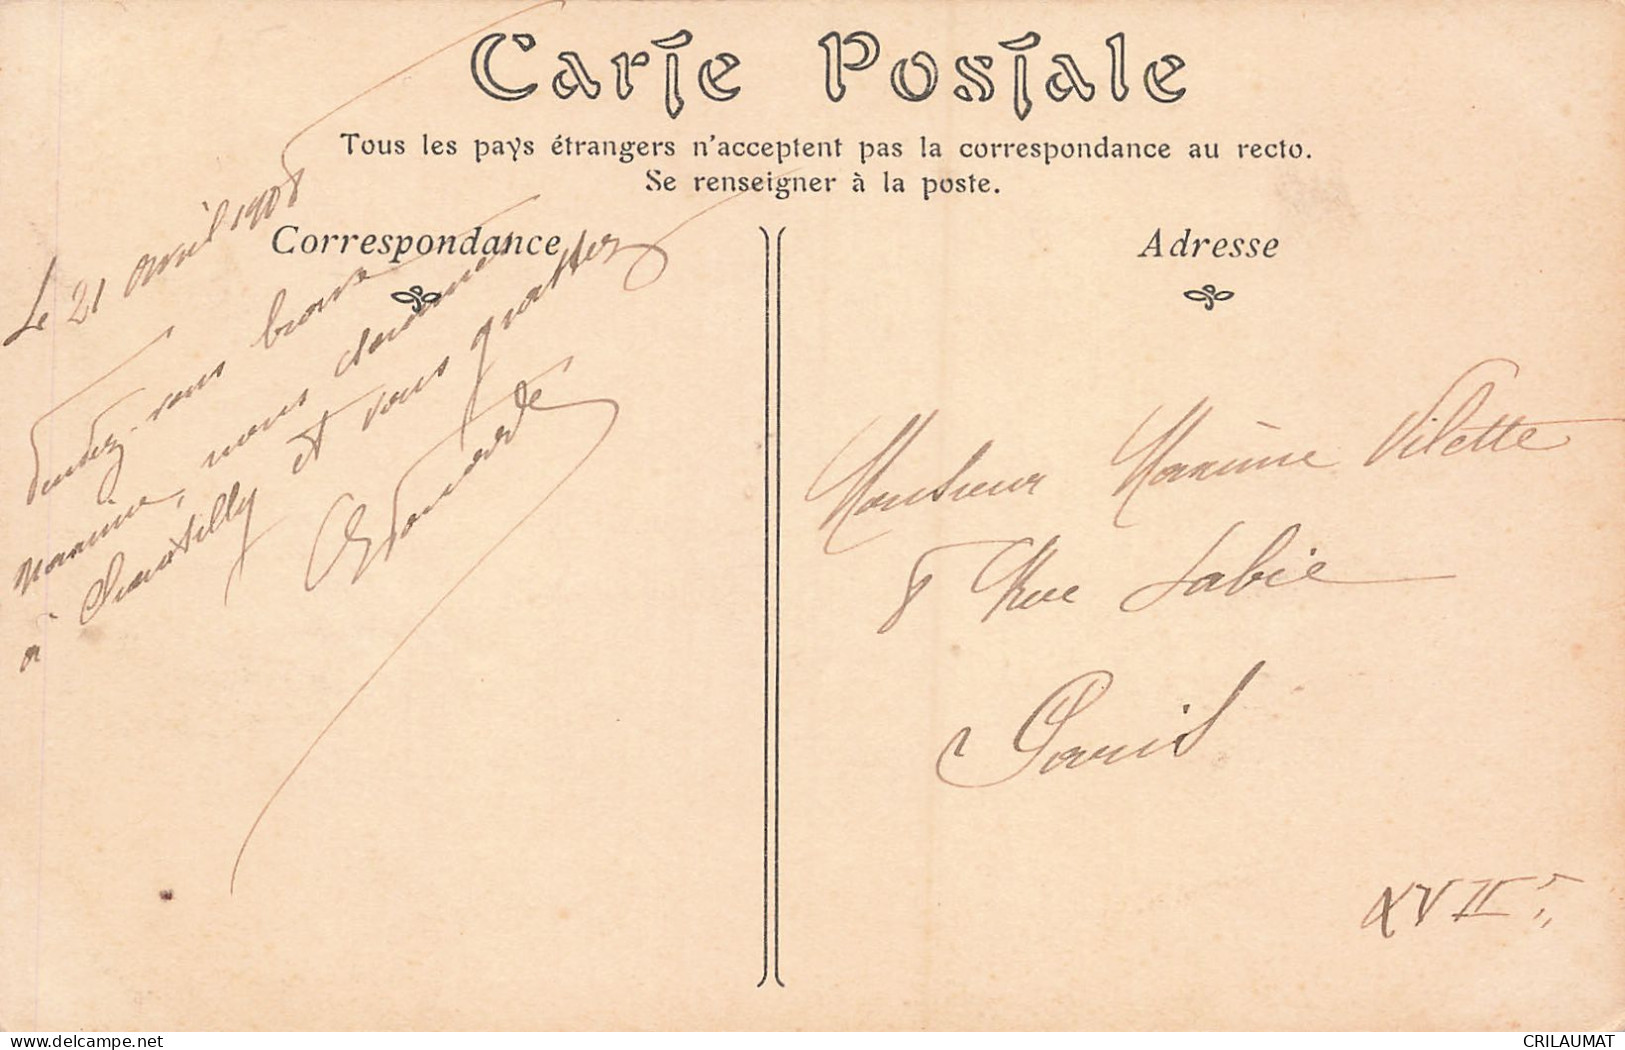 Carte Postale
Tous les pays étrangers n'acceptent pas la correspondance au recto.
Se renseigner à la poste.
Correspondance
Adresse
Le 21 avril 1908
Rendez-vous brave
Maxime, nous
à Chantilly et vous
Monsieur Maxime Vilette
8 Rue Labie
Paris
XVIIe
delcampe.net
CRILAUMAT